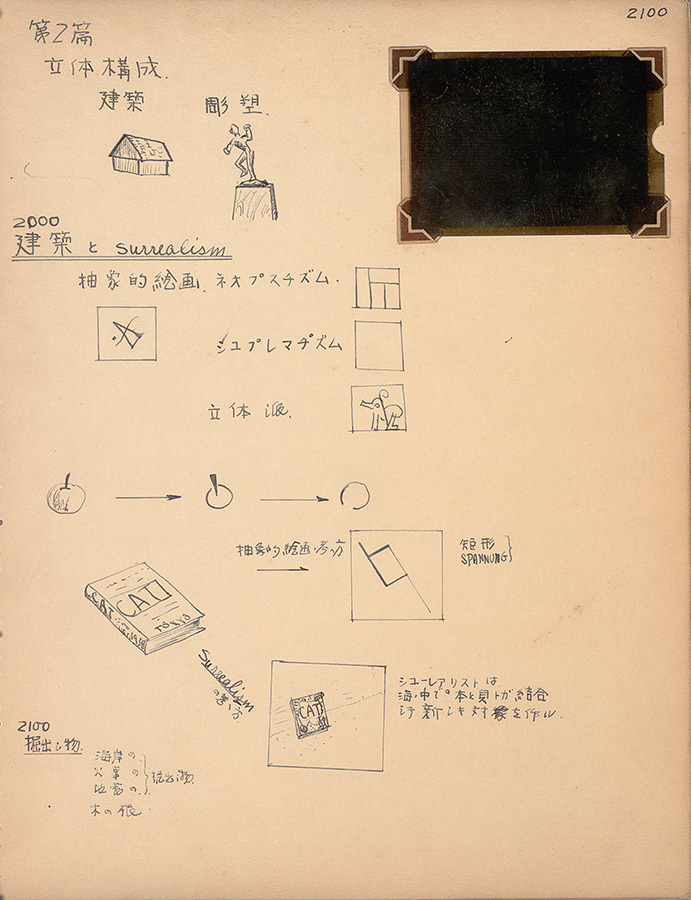 2100
第2篇
立体構成.
建築 彫塑.
2000
建築 と surrealism
抽象的絵画. ネオプラスチズム.
シユプレマチズム
立体派.
抽象的絵画ノ考へ方
矩形
SPANNUNG
CAT
CAT
TOKYO
Surrealism
の考へ方
CAT
シユーレアリストは
海ノ中で本と貝トガ結合
シテ新シキ対象を作ル.
2100
掘出し物.
海岸の
火事の
地震の
掘出し物.
木の根.